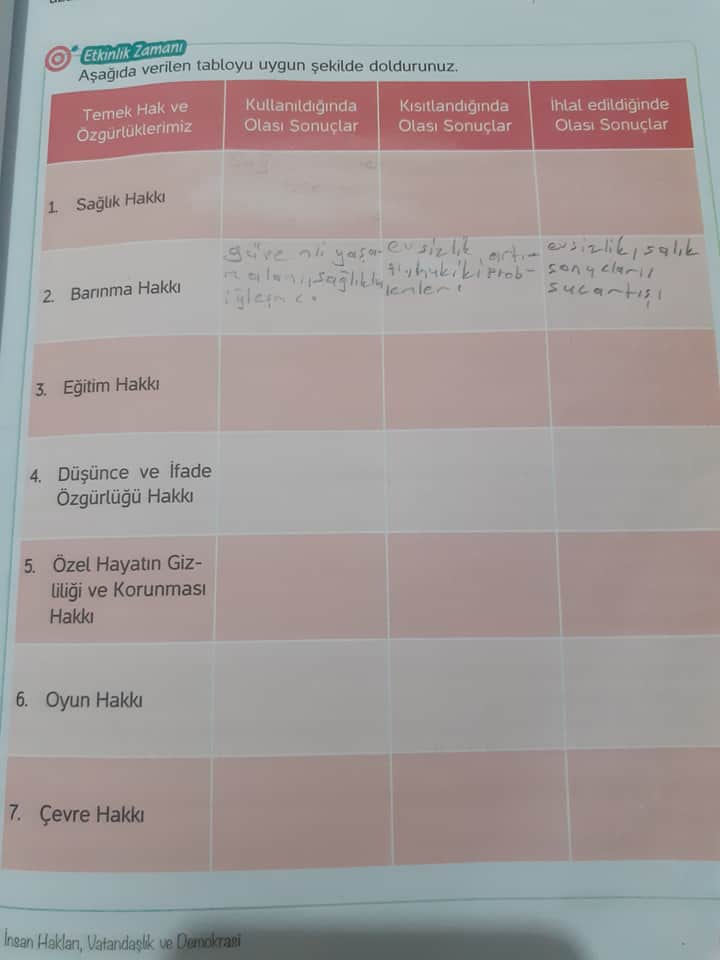 Etkinlik Zamanı
Aşağıda verilen tabloyu uygun şekilde doldurunuz.
Temek Hak ve
Özgürlüklerimiz
Kullanıldığında
Olası Sonuçlar
Kısıtlandığında
Olası Sonuçlar
İhlal edildiğinde
Olası Sonuçlar
1. Sağlık Hakkı
2. Barınma Hakkı
güvenli yaşa-
m alanı, sağlıklı
evsizlik, artı-
şı, hukiki prob-
lemleri
evsizlik, salık
sonuçları,
suç artışı
3. Eğitim Hakkı
4. Düşünce ve İfade
Özgürlüğü Hakkı
5. Özel Hayatın Giz-
liliği ve Korunması
Hakkı
6. Oyun Hakkı
7. Çevre Hakkı
İnsan Hakları, Vatandaşlık ve Demokrasi